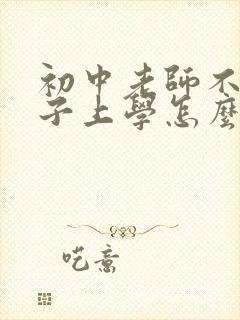 初中老師不
子上學怎麼
呓意